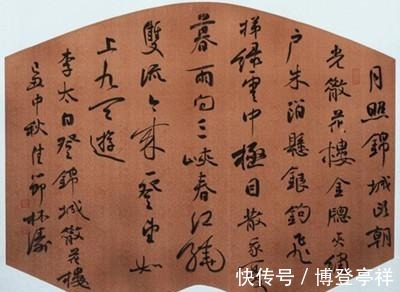 日照錦城頭朝
光散花樓金窗夾繡
户朱泊懸銀鉤飛
梯緑雲中極目散我憂
暮雨向三峽春江繞
雙流今來一登望如
上九天遊
李太白登錦城散花樓
中秋佳節林濤
快传号 / 博登亭祥